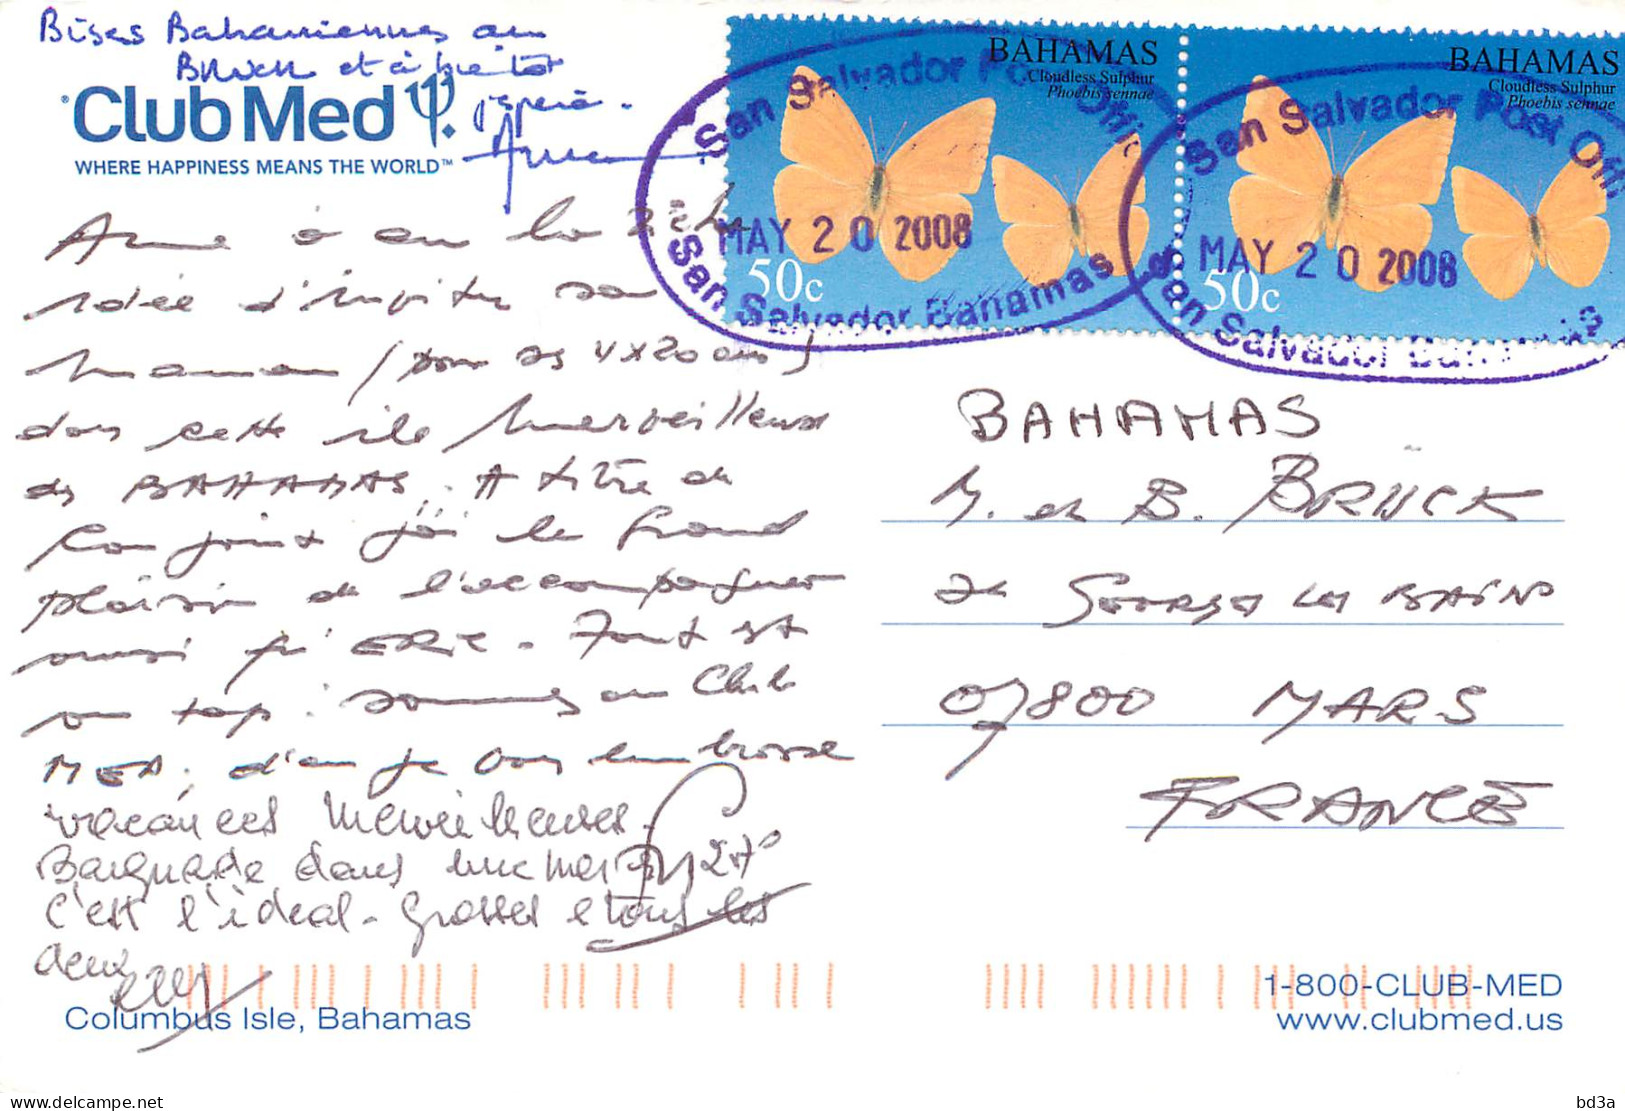 Bises Bahamiennes au
Bruck et à bientôt
j'espère.
Club Med
WHERE HAPPINESS MEANS THE WORLD™
Anne a eu la
idée d'inviter sa
maman (pour ses 4x20 ans)
dans cette île merveilleuse
des BAHAMAS. A titre de
conjoint j'ai le grand
plaisir de l'accompagner
ainsi qu'ERIC. Tout est
au top. Sommes au Club
MED, d'où je vous embrasse
vacances merveilleuses.
Baignade dans une mer à 27°
C'est l'idéal. Grosses à tous les
deux
BAHAMAS
Cloudless Sulphur
Phoebis sennae
50c
San Salvador Post Offic
MAY 20 2008
San Salvador Bahamas
BAHAMAS
Cloudless Sulphur
Phoebis sennae
50c
San Salvador Post Offi
MAY 20 2008
San Salvador
BAHAMAS
M. et B. BRUCK
ST GEORGES LES BAINS
07800 MARS
FRANCE
Columbus Isle, Bahamas
1-800-CLUB-MED
www.clubmed.us
bd3a
delcampe.net